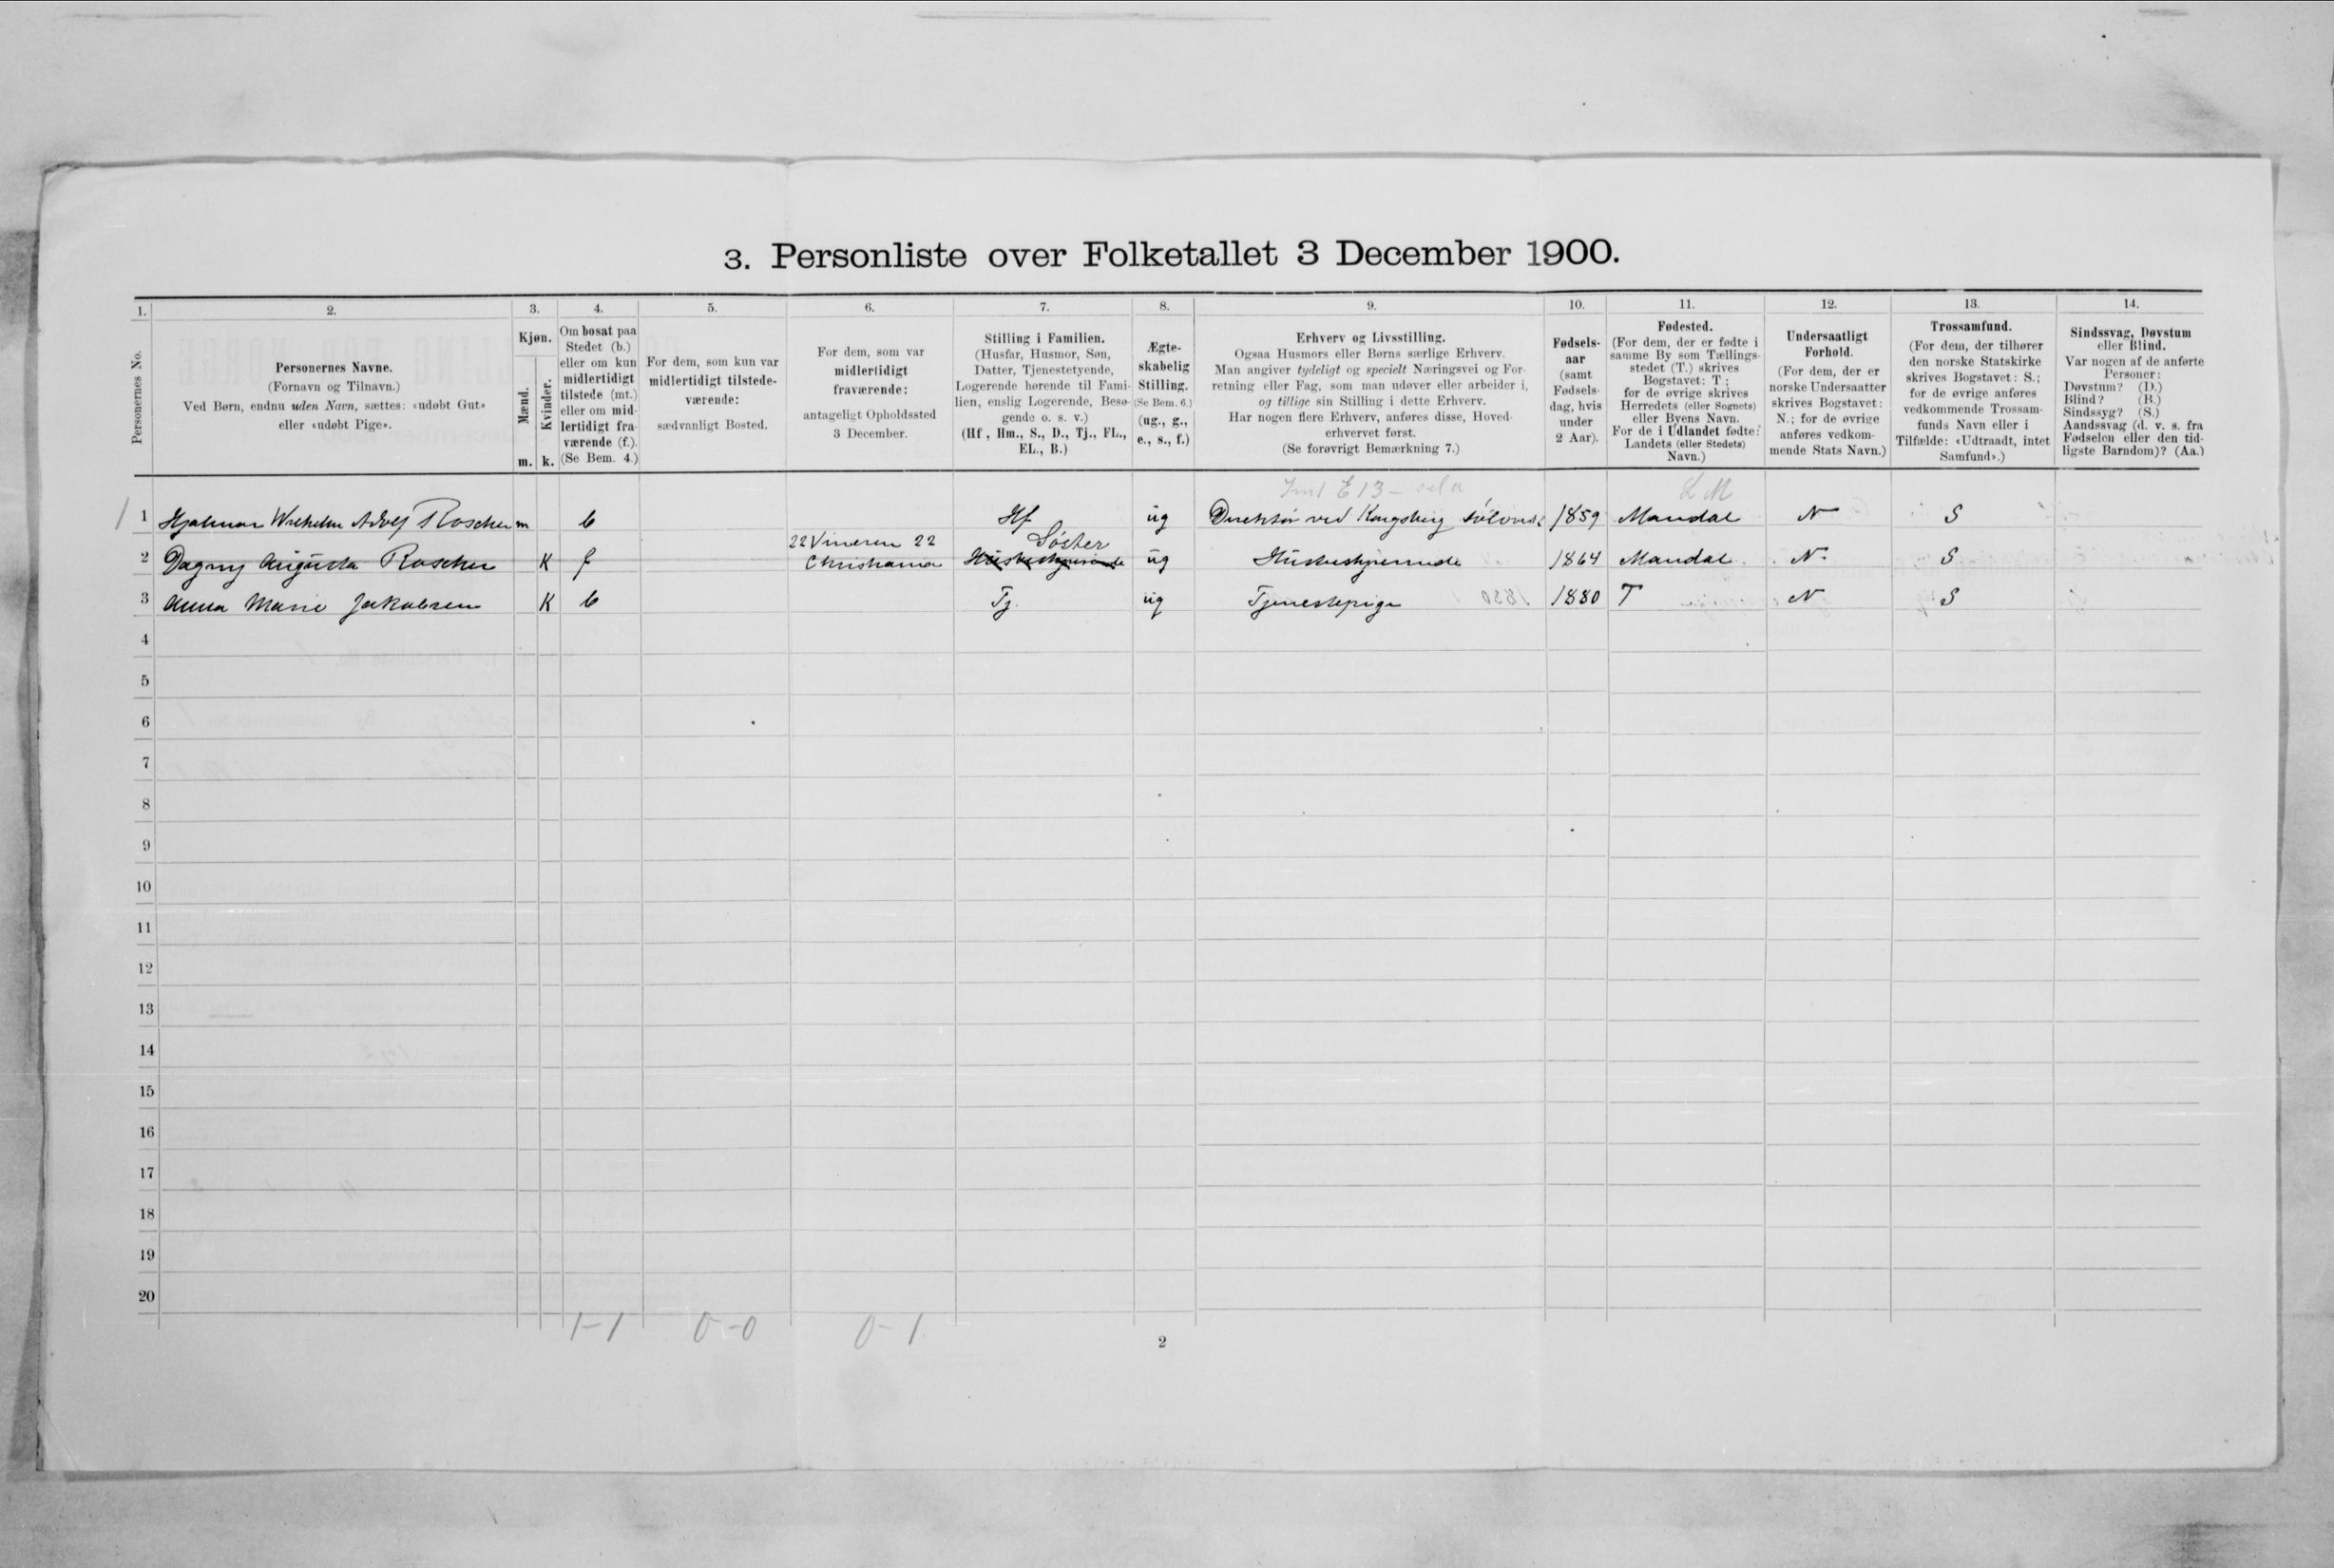 3. Personliste over Folketallet 3 December 1900.
1.
2.
3.
4.
5.
6.
7.
8.
9.
10.
11.
12.
13.
14.
Personernes No.
Personernes Navne.
(Fornavn og Tilnavn.)
Ved Børn, endnu uden Navn, sættes: «udøbt Gut»
eller «udøbt Pige».
Kjøn.
Mænd.
Kvinder.
m.
k.
Om bosat paa
Stedet (b.)
eller om kun
midlertidigt
tilstede (mt.)
eller om mid-
lertidigt fra-
værende (f.).
(Se Bem. 4.)
For dem, som kun var
midlertidigt tilstede-
værende:
sædvanligt Bosted.
For dem, som var
midlertidigt
fraværende:
antageligt Opholdssted
3 December.
Stilling i Familien.
(Husfar, Husmor, Søn,
Datter, Tjenestetyende,
Logerende hørende til Fami-
lien, enslig Logerende, Besø-
gende o. s. v.)
(Hf., Hm., S., D., Tj., FL.,
EL., B.)
Ægte-
skabelig
Stilling.
(Se Bem. 6.)
(ug., g.,
e., s., f.)
Erhverv og Livsstilling.
Ogsaa Husmors eller Børns særlige Erhverv.
Man angiver tydeligt og specielt Næringsvei og For-
retning eller Fag, som man udøver eller arbeider i,
og tillige sin Stilling i dette Erhverv.
Har nogen flere Erhverv, anføres disse, Hoved-
erhvervet først.
(Se forøvrigt Bemærkning 7.)
Fødsels-
aar
(samt
Fødsels-
dag, hvis
under
2 Aar).
Fødested.
(For dem, der er fødte i
samme By som Tællings-
stedet (T.) skrives
Bogstavet: T;
for de øvrige skrives
Herredets (eller Sognets)
eller Byens Navn.
For de i Udlandet fødte:
Landets (eller Stedets)
Navn.)
Undersaatligt
Forhold.
(For dem, der er
norske Undersaatter
skrives Bogstavet:
N.; for de øvrige
anføres vedkom-
mende Stats Navn.)
Trossamfund.
(For dem, der tilhører
den norske Statskirke
skrives Bogstavet: S.;
for de øvrige anføres
vedkommende Trossam-
funds Navn eller i
Tilfælde: «Udtraadt, intet
Samfund».)
Sindssvag, Døvstum
eller Blind.
Var nogen af de anførte
Personer:
Døvstum? (D.)
Blind? (B.)
Sindssyg? (S.)
Aandssvag (d. v. s. fra
Fødselen eller den tid-
ligste Barndom)? (Aa.)
E 13
1 1 Hjalmar Wilhelm Adolf Roscher m b Hf ug Direktør ved Kongsberg Sølvverk 1859 Mandal N S
22 Vinderen 22
Søster
2 Dagny Augusta Roscher K f Christiania Husbestyrerinde ug Husbestyrerinde 1864 Mandal N. S
3 Anna Marie Jakobsen K b Tj. ug Tjenestepige 1880 T N S
4
5
6
7
8
9
10
11
12
13
14
15
16
17
18
19
20
1-1 0-0 0-1
2